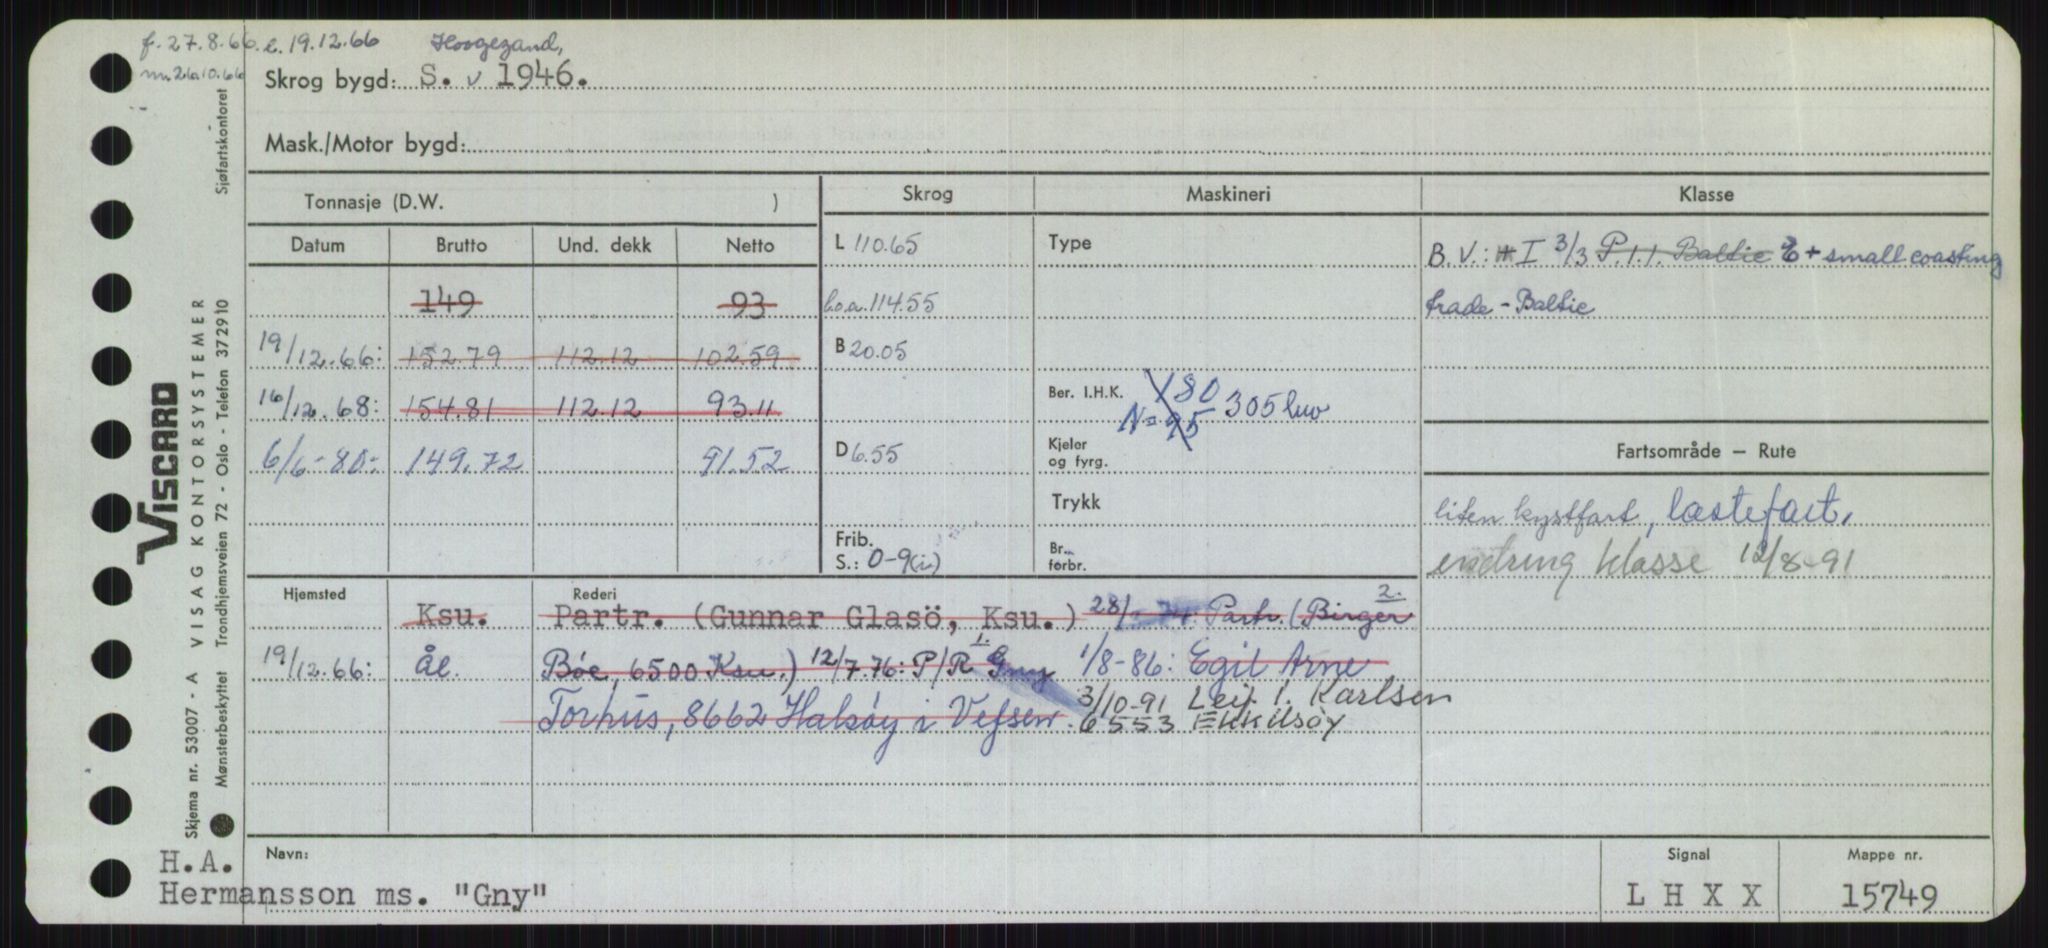 f. 27.8.66. l. 19.12.66 Hoogezand,
Skrog bygd: S. v 1946.
Mask./Motor bygd:
Sjøfartskontoret
Tonnasje (D.W. ) Skrog Maskineri Klasse
Datum Brutto Und. dekk Netto L 110.65 Type B.V.: I 3/3 P.1.1. Baltic + small coasting
149 93 l.o.a. 114.55 trade - Baltic
19/12.66: 152.79 112.12 102.59 B 20.05
16/12.68: 154.81 112.12 93.11 Ber. I.H.K. 180 305
N= 95
6/6-80: 149.72 91.52 D 6.55 Kjeler og fyrg. Fartsområde — Rute
Trykk liten kystfart, lastefart.
Frib. S.: 0-9(i) Br. forbr. endring klasse 12/8-91
Hjemsted Rederi
Ksu. Partr. (Gunnar Glasö, Ksu.) 28/ Partr. (Birger 2.
19/12.66: Ål. Böe, 6500 Ksu.) 12/7.76: P/R Gny 1. 1/8-86: Egil Arne
Torhus, 8662 Halsøy i Vefsen. 3/10-91 Leif I. Karlsen
6553 Ekkilsøy
VISCARD
VISAG KONTORSYSTEMER
Skjema nr. 53007 - A
Mønsterbeskyttet Trondhjemsveien 72 - Oslo - Telefon 372910
H.A. Navn: Signal Mappe nr.
Hermansson ms. "Gny" L H X X 15749